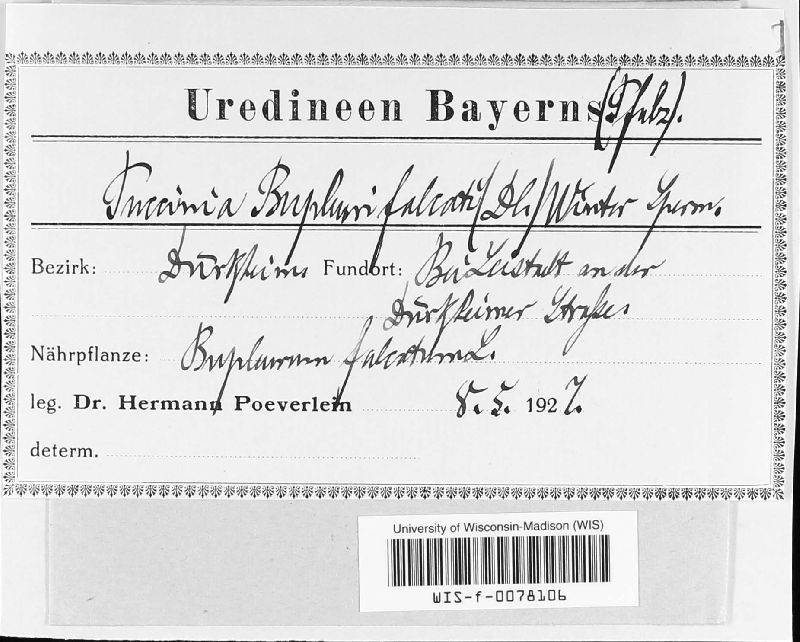 Uredineen Bayerns (Pfalz).
Puccinia Bupleuri falcati (DC.) Winter Sperm.
Bezirk: Dürkheim. Fundort: Bei Leistadt an der
Dürkheimer Straße.
Nährpflanze: Bupleurum falcatum L.
leg. Dr. Hermann Poeverlein 8. 5. 1927.
determ.
University of Wisconsin-Madison (WIS)
WIS-f-0078106